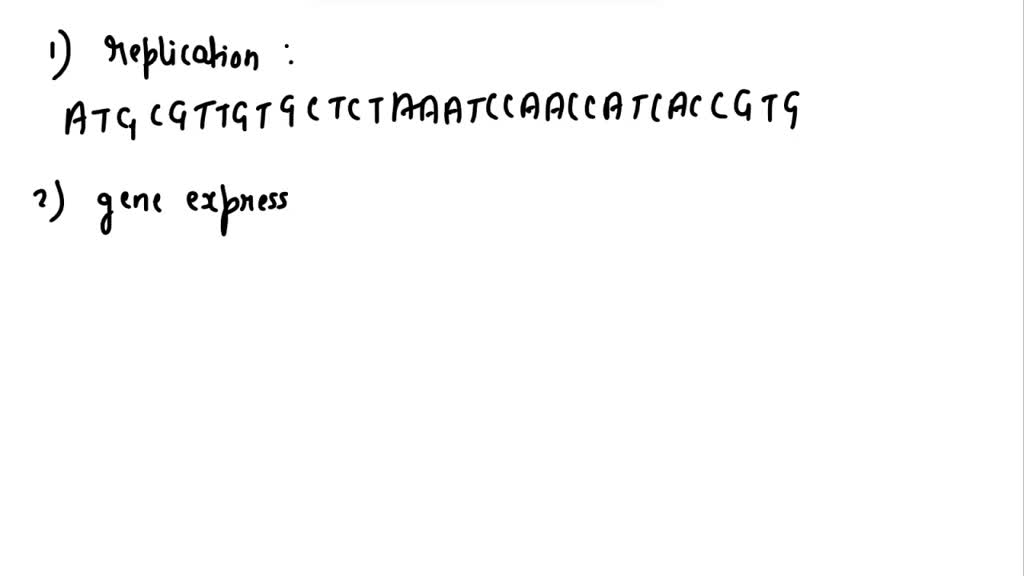 1) replication :
ATGCGTTGTGCTCTAAATCCAACCATCACCGTG
2) gene express